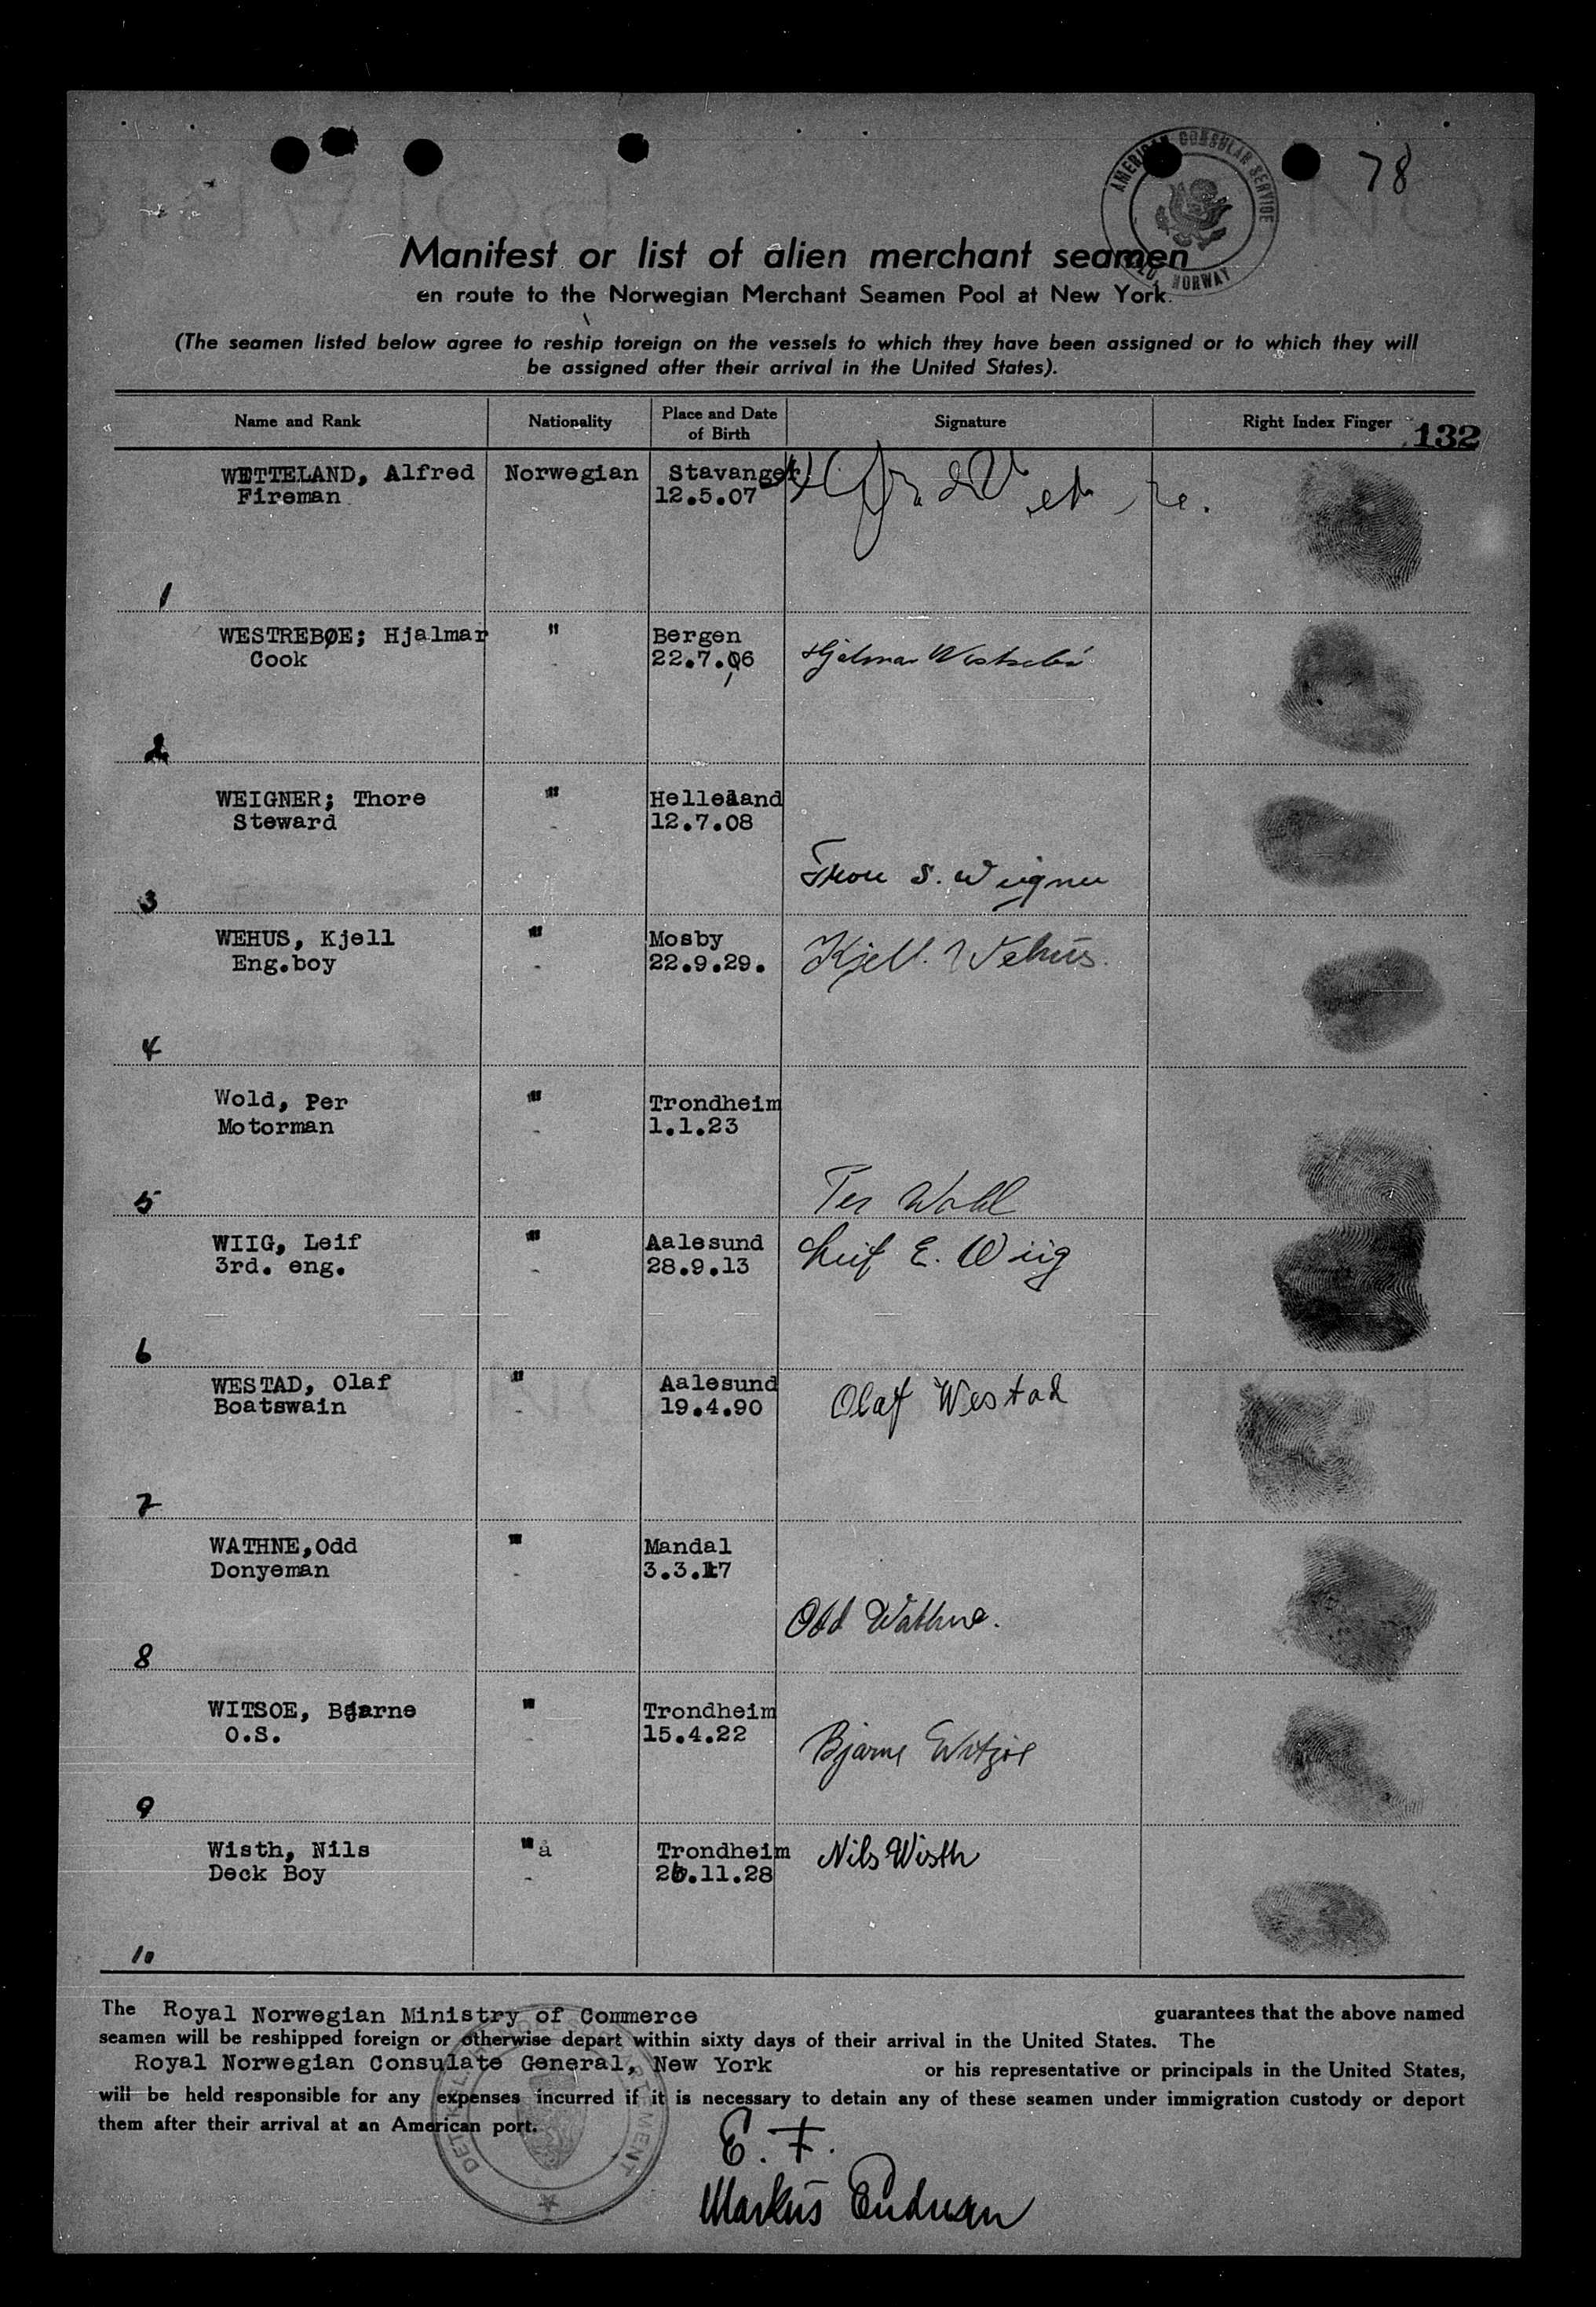 78
AMERICAN CONSULAR SERVICE
NORWAY
Manifest or list of alien merchant seamen
en route to the Norwegian Merchant Seamen Pool at New York.
(The seamen listed below agree to reship foreign on the vessels to which they have been assigned or to which they will
be assigned after their arrival in the United States).
Name and Rank Nationality Place and Date of Birth Signature Right Index Finger 132
WETTELAND, Alfred Norwegian Stavanger
Fireman 12.5.07
1
WESTREBØE; Hjalmar " Bergen
Cook 22.7.06 Hjalmar
2
WEIGNER; Thore " Helleland
Steward 12.7.08
3 S. Weigner
WEHUS, Kjell " Mosby
Eng.boy 22.9.29. Kjell. Wehus.
4
Wold, Per " Trondheim
Motorman 1.1.23
5 Per Wold
WIIG, Leif " Aalesund Leif E. Wiig
3rd. eng. 28.9.13
6
WESTAD, Olaf " Aalesund Olaf Westad
Boatswain 19.4.90
7
WATHNE,Odd " Mandal
Donyeman 3.3.17
8 Odd Wathne.
WITSOE, Bjarne " Trondheim
O.S. 15.4.22 Bjarne Witzøe
9
Wisth, Nils "å Trondheim Nils Wisth
Deck Boy .11.28
10
The Royal Norwegian Ministry of Commerce guarantees that the above named
seamen will be reshipped foreign or otherwise depart within sixty days of their arrival in the United States. The
Royal Norwegian Consulate General, New York or his representative or principals in the United States,
will be held responsible for any expenses incurred if it is necessary to detain any of these seamen under immigration custody or deport
them after their arrival at an American port.
E. F.
Markus